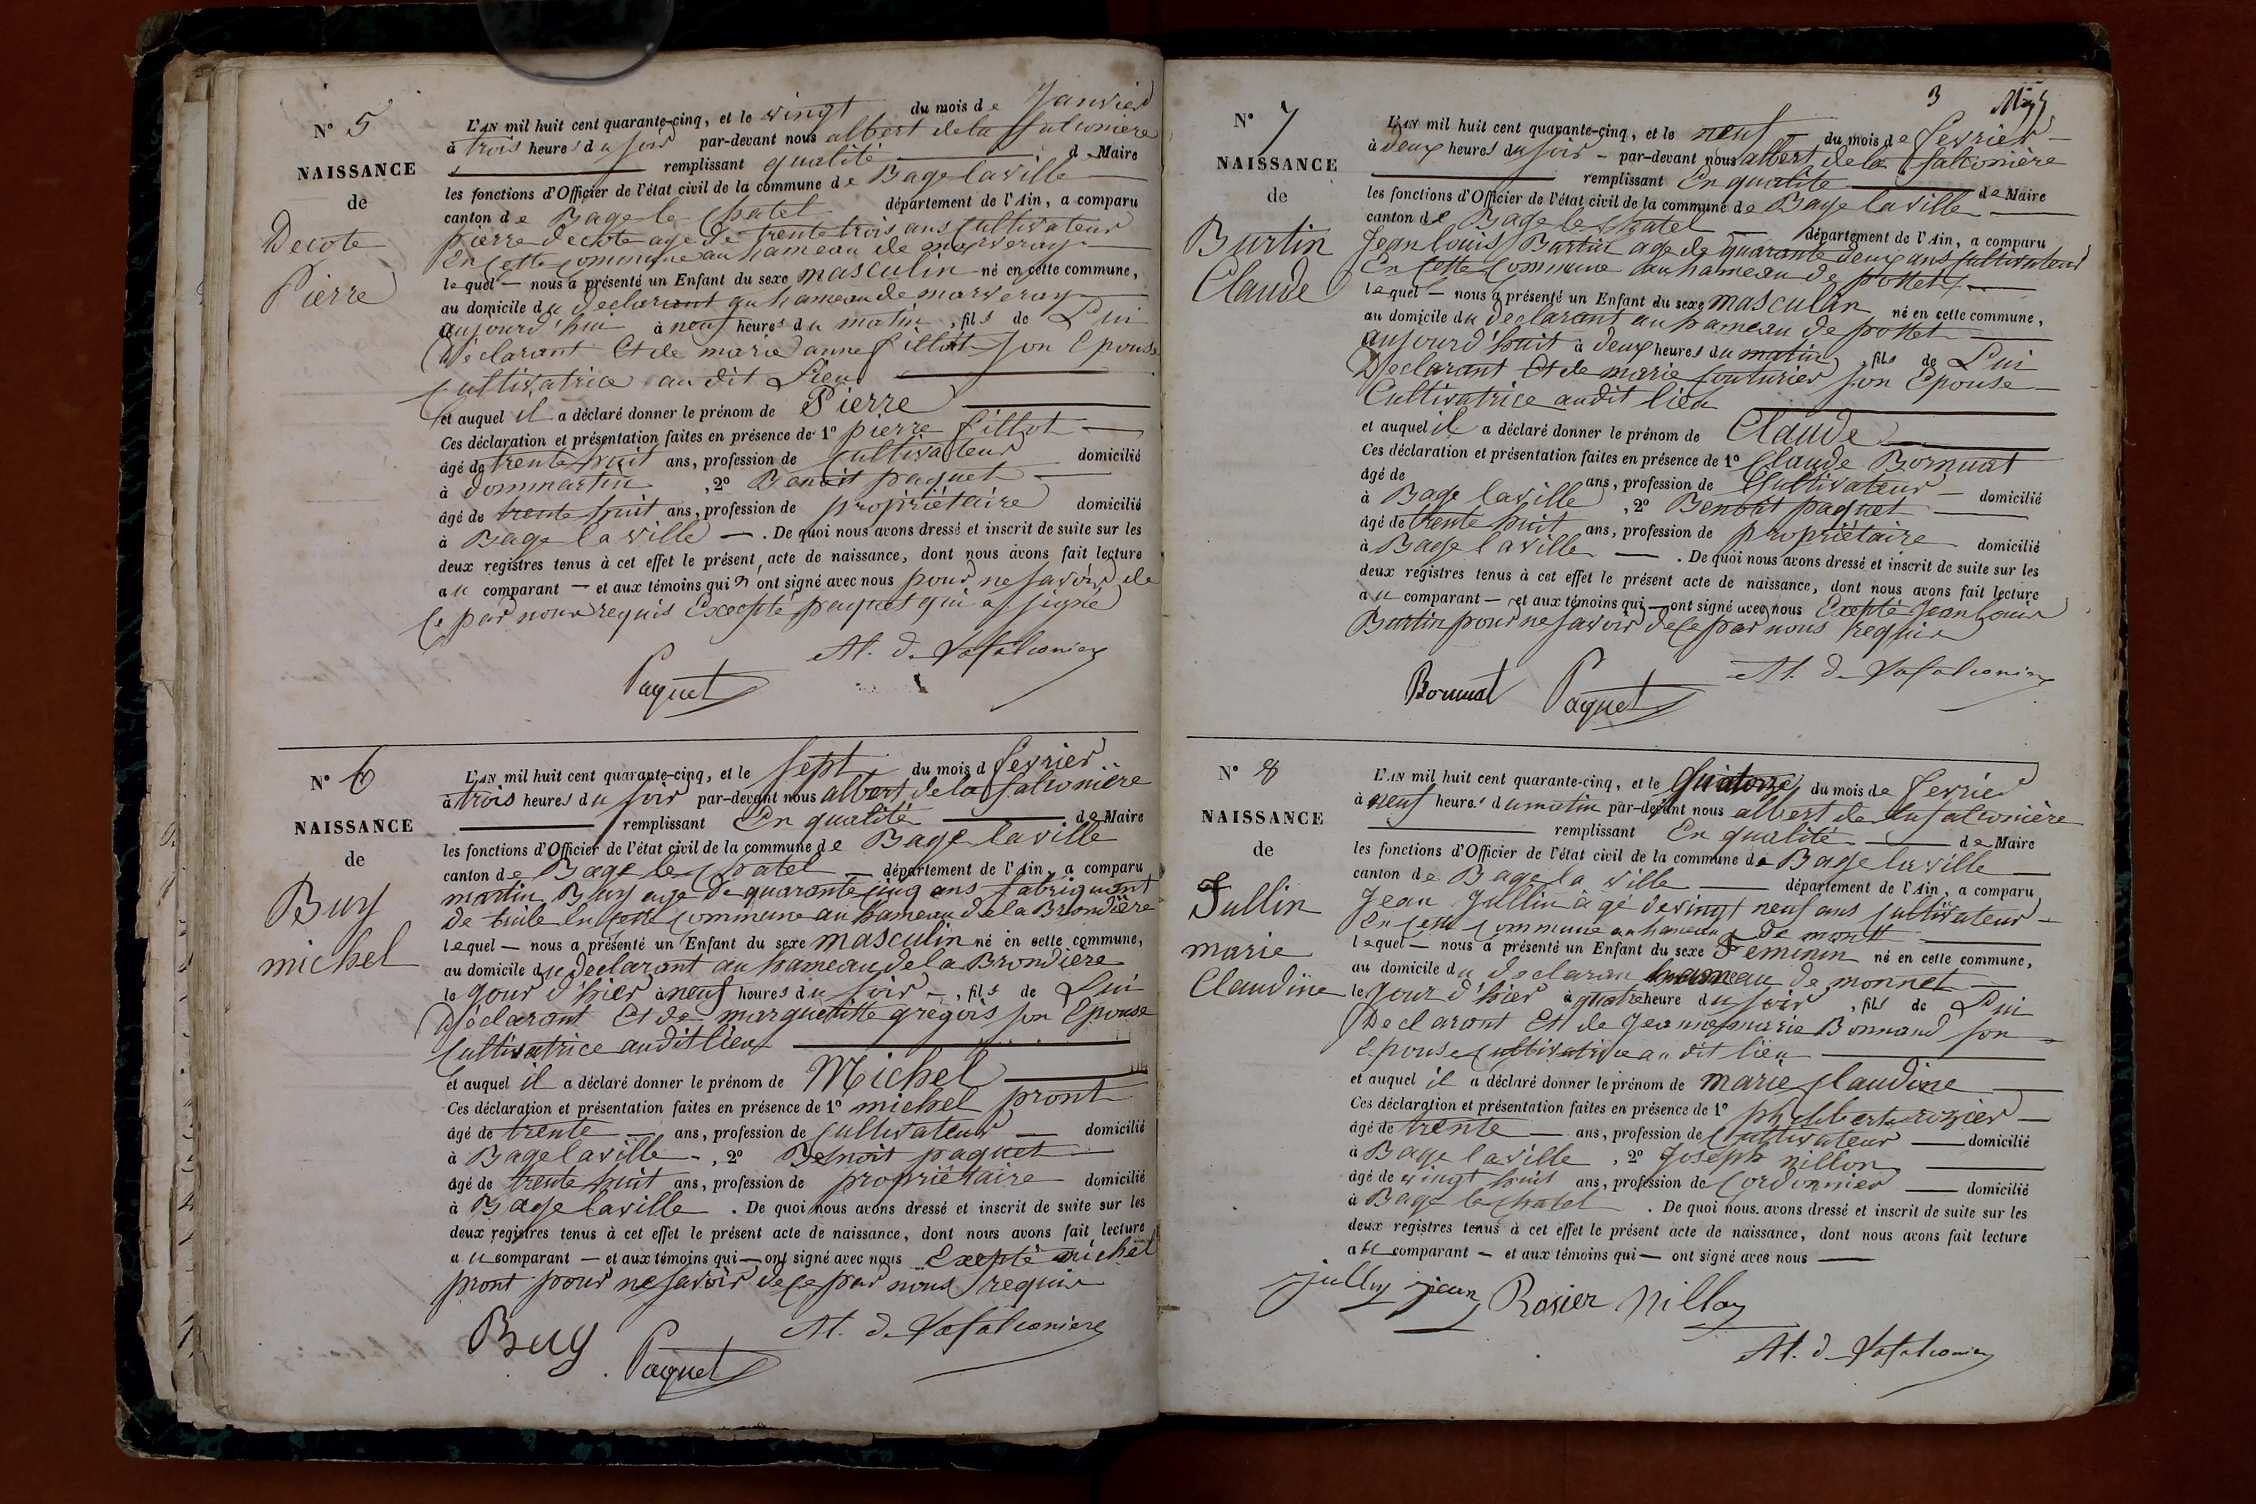 N° 5
NAISSANCE
de
Decote
Pierre
L'AN mil huit cent quarante-cinq, et le vingt du mois de Janvier
à trois heures du soir par-devant nous albert de la falconière
remplissant qualité de Maire
les fonctions d'Officier de l'état civil de la commune de Bage la ville
canton de Bage le Chatel département de l'Ain, a comparu
pierre decote age de trente trois ans Cultivateur
En Cette Commune au hameau de marveray
lequel — nous a présenté un Enfant du sexe masculin né en cette commune,
au domicile du declarant au hameau de marveray
aujourd'hui à neuf heures du matin, fils de Lui
Déclarant Et de marie anne fillot Son Epouse
Cultivatrice au dit Lieu
et auquel il a déclaré donner le prénom de Pierre
Ces déclaration et présentation faites en présence de 1° pierre fillot
âgé de trente huit ans, profession de Cultivateur domicilié
à dommartin, 2° Benoit paquet
âgé de trente huit ans, profession de propriétaire domicilié
à Bage la ville — . De quoi nous avons dressé et inscrit de suite sur les
deux registres tenus à cet effet le présent acte de naissance, dont nous avons fait lecture
au comparant — et aux témoins qui n ont signé avec nous pour ne savoir de
Ce par nous requis Excepté paquet qui a signé
Paquet
Al. de Lafalconiere
N° 6
NAISSANCE
de
Buy
michel
L'AN mil huit cent quarante-cinq, et le Sept du mois d fevrier
à trois heures du soir par-devant nous albert de la falconière
remplissant En qualité de Maire
les fonctions d'Officier de l'état civil de la commune de Bage la ville
canton de Bage le Chatel — département de l'Ain, a comparu
martin Buy age de quarante cinq ans fabriquant
de tuile En Cette Commune au hameau de la Brondière
lequel — nous a présenté un Enfant du sexe masculin né en cette commune,
au domicile du declarant au hameau de la Brondière
le jour d'hier à neuf heures du soir — , fils de Lui
Déclarant Et de marguetitte gregois son Epouse
Cultivatrice audit lieu
et auquel il a déclaré donner le prénom de Michel
Ces déclaration et présentation faites en présence de 1° michel pront
âgé de trente — ans, profession de Cultivateur — domicilié
à Bage la ville — , 2° Benoit paquet
âgé de trente huit ans, profession de propriétaire domicilié
à Bage la ville . De quoi nous avons dressé et inscrit de suite sur les
deux registres tenus à cet effet le présent acte de naissance, dont nous avons fait lecture
au comparant — et aux témoins qui — ont signé avec nous Excepté michel
pront pour ne savoir de Ce par nous requis
Buy
Paquet
Al. de Lafalconiere
3
N° 7
NAISSANCE
de
Burtin
Claude
L'AN mil huit cent quarante-cinq, et le neuf du mois de fevrier
à deux heures du soir — par-devant nous albert de la falconière
remplissant En qualité de Maire
les fonctions d'Officier de l'état civil de la commune de Bage la ville
canton de Bage le Chatel — département de l'Ain, a comparu
Jean louis Burtin age de quarante deux ans Cultivateur
En Cette Commune au hameau de pottet
lequel — nous a présenté un Enfant du sexe masculin né en cette commune,
au domicile du declarant au hameau de pottet
aujourd'huit à deux heures du matin, fils de Lui
Declarant Et de marie Couturier Son Epouse
Cultivatrice audit lieu
et auquel il a déclaré donner le prénom de Claude
Ces déclaration et présentation faites en présence de 1° Claude Bornuat
âgé de ans, profession de Cultivateur — domicilié
à Bage la ville, 2° Benoit paquet
âgé de trente huit ans, profession de propriétaire domicilié
à Bage la ville — . De quoi nous avons dressé et inscrit de suite sur les
deux registres tenus à cet effet le présent acte de naissance, dont nous avons fait lecture
au comparant — et aux témoins qui — ont signé avec nous Exepté Jean louis
Burtin pour ne savoir de Ce par nous requis
Bornuat Paquet
Al. de Lafalconiere
N° 8
NAISSANCE
de
Jullin
marie
Claudine
L'AN mil huit cent quarante-cinq, et le Quatorze du mois de fevrier
à neuf heures du matin par-devant nous albert de la falconière
remplissant En qualité de Maire
les fonctions d'Officier de l'état civil de la commune de Bage la ville
canton de Bage la ville — département de l'Ain, a comparu
Jean Jullin âgé de vingt neuf ans Cultivateur
En Cette Commune au hameau de
lequel — nous a présenté un Enfant du sexe Feminin né en cette commune,
au domicile du declaran hameau de monnet
le jour d'hier à quatre heure du soir, fils de Lui
Declarant Et de Jeanne marie Bonnand Son
Epouse Cultivatrice au dit lieu
et auquel il a déclaré donner le prénom de marie Claudine
Ces déclaration et présentation faites en présence de 1° philibert rozier
âgé de trente — ans, profession de Cultivateur — domicilié
à Bage la ville, 2° Joseph nillon
âgé de vingt huit ans, profession de Cordonnier — domicilié
à Bage le Chatel . De quoi nous avons dressé et inscrit de suite sur les
deux registres tenus à cet effet le présent acte de naissance, dont nous avons fait lecture
au comparant — et aux témoins qui — ont signé avec nous —
jean Rosier Nillon
Al. de Lafalconiere